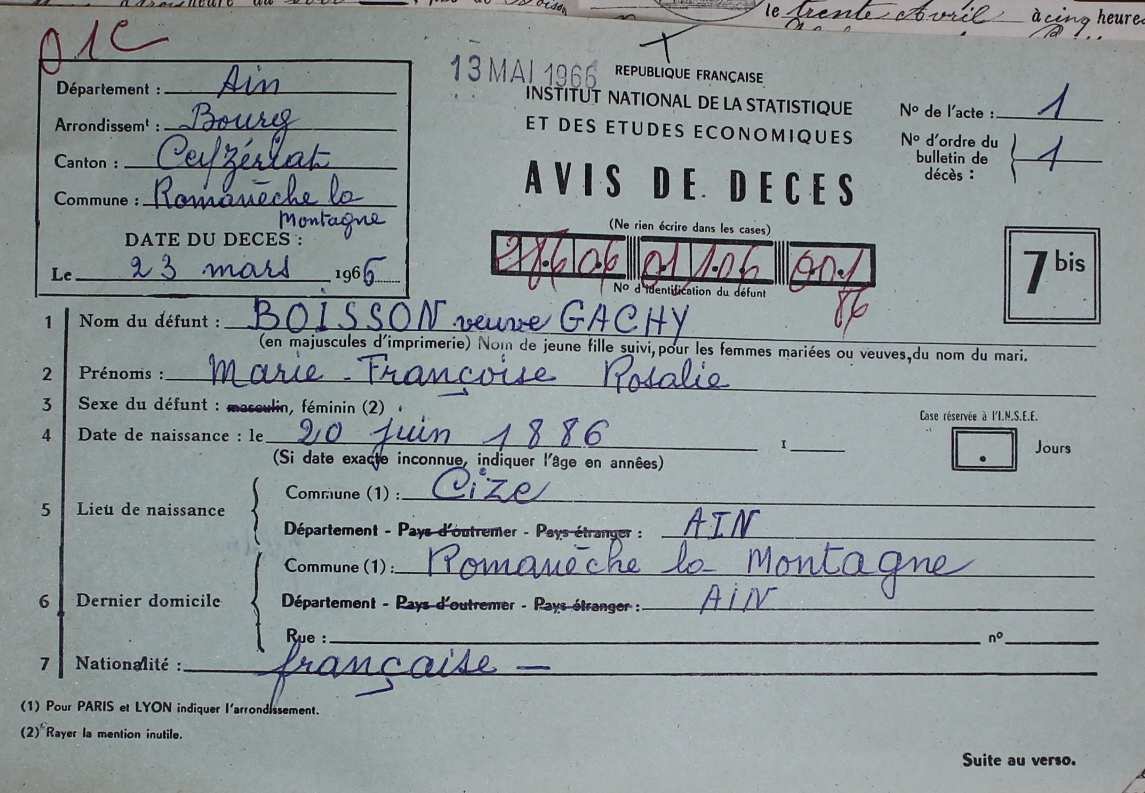 le trente Avril à cinq heures
01C
13 MAI 1966
REPUBLIQUE FRANÇAISE
INSTITUT NATIONAL DE LA STATISTIQUE
ET DES ETUDES ECONOMIQUES
AVIS DE DECES
N° de l'acte : 1
N° d'ordre du bulletin de décès : 1
Département : Ain
Arrondissemt : Bourg
Canton : Ceyzériat
Commune : Romanèche la
Montagne
DATE DU DECES :
Le 23 mars 1966
(Ne rien écrire dans les cases)
2 86 06 01 106 001
N° d'identification du défunt
86
7 bis
1 Nom du défunt : BOISSON veuve GACHY
(en majuscules d'imprimerie) Nom de jeune fille suivi, pour les femmes mariées ou veuves, du nom du mari.
2 Prénoms : Marie - Françoise Rosalie
3 Sexe du défunt : masculin, féminin (2)
4 Date de naissance : le 20 juin 1886 I
(Si date exacte inconnue, indiquer l'âge en années)
Case réservée à l'I.N.S.E.E.
Jours
5 Lieu de naissance
Commune (1) : Cize
Département - Pays d'outremer - Pays étranger : AIN
6 Dernier domicile
Commune (1) : Romanèche la Montagne
Département - Pays d'outremer - Pays étranger : AIN
Rue : n°
7 Nationalité : française —
(1) Pour PARIS et LYON indiquer l'arrondissement.
(2) Rayer la mention inutile.
Suite au verso.